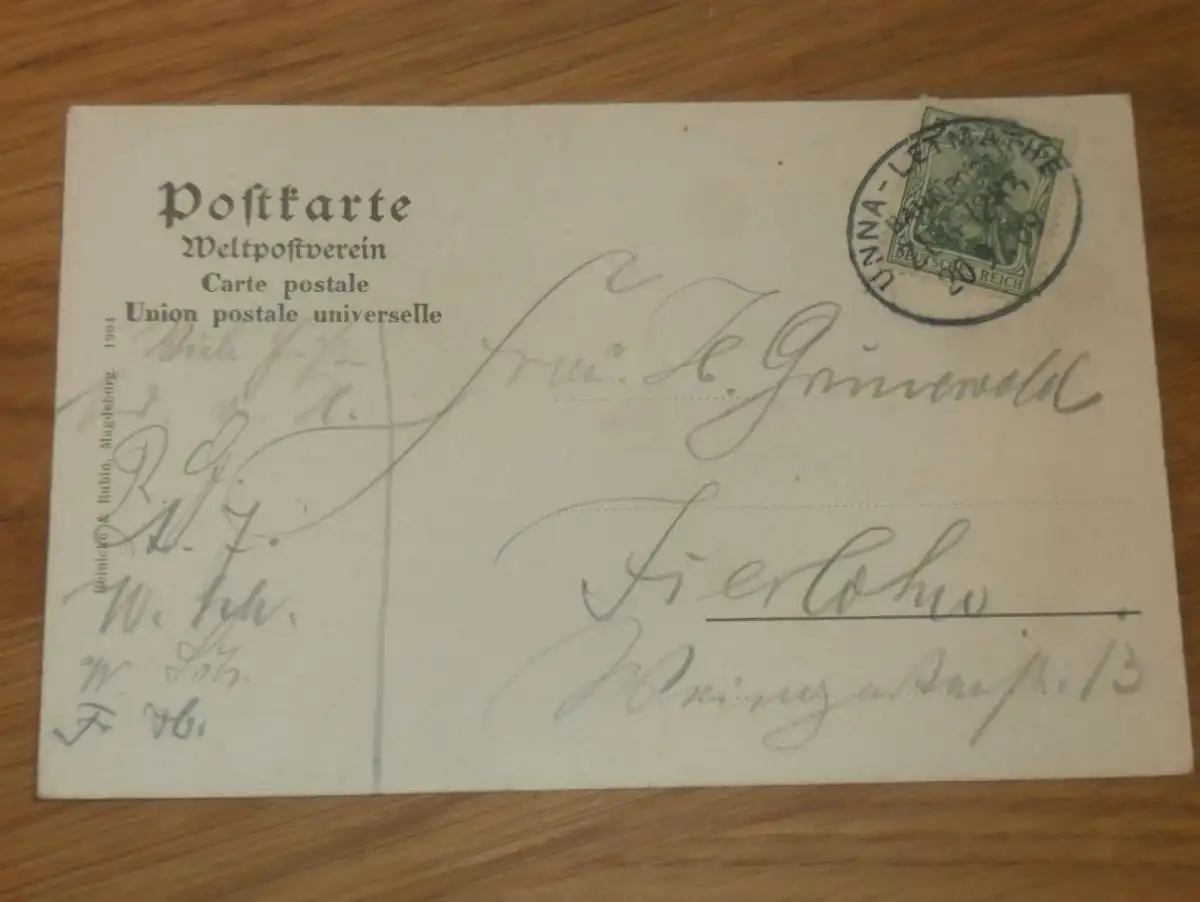 Postkarte
Weltpostverein
Carte postale
Union postale universelle
Reinicke & Rubin, Magdeburg 1904
UNNA-LETMATHE
BAHNPOST
DEUTSCHES REICH
Frau. H. Grünewald
Iserlohn
Weingartenstr. 13
Viele
und
R. G.
A. F.
W. Sch.
W.
F.